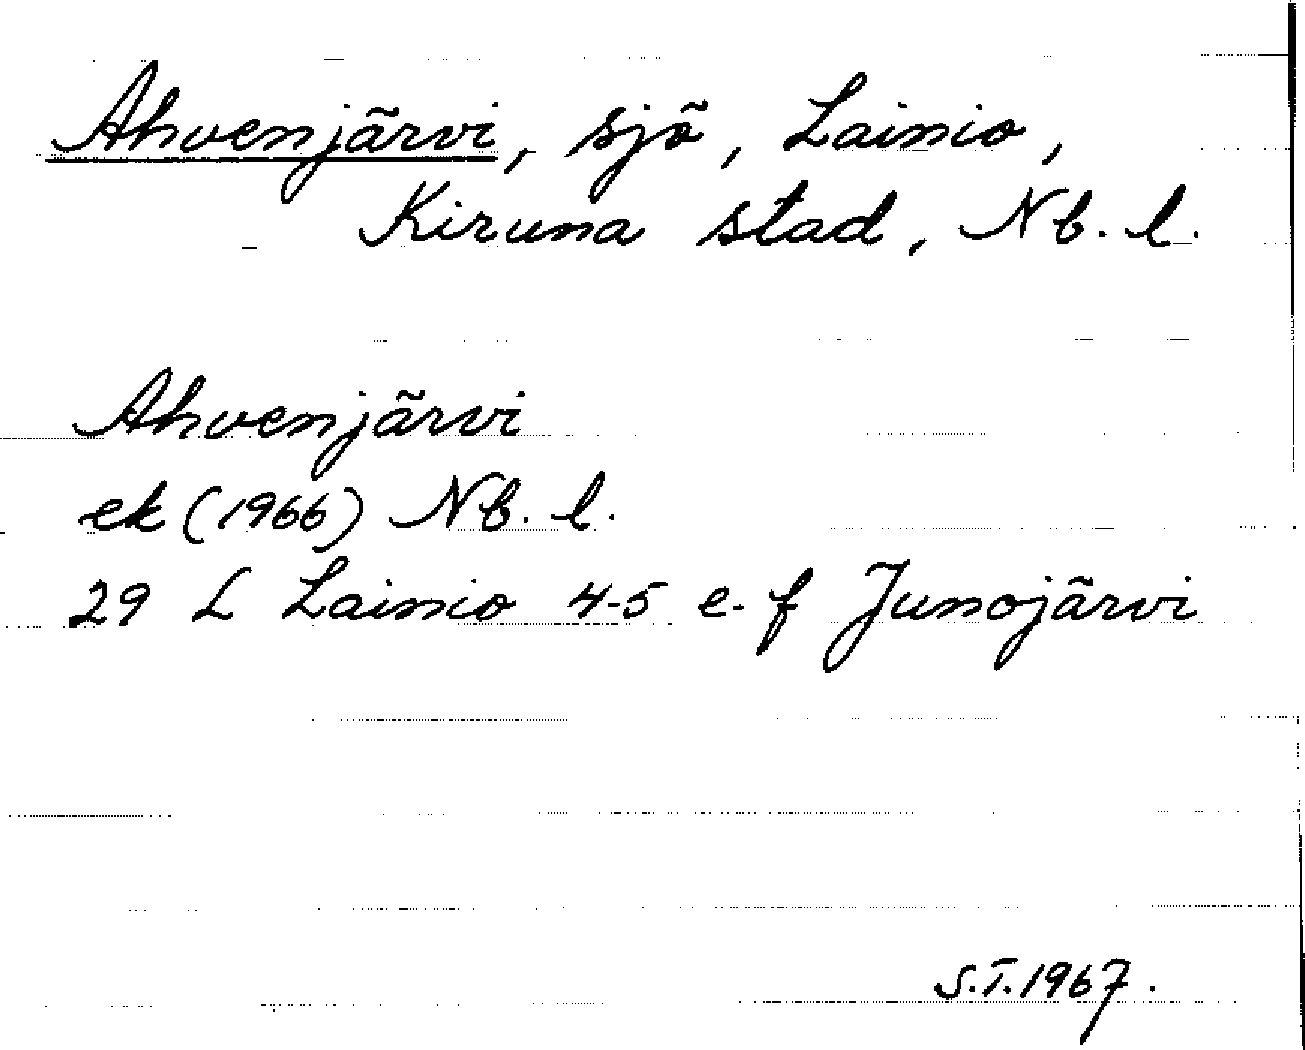 Ahvenjärvi, sjö, Lainio,
Kiruna stad, Nb. l.
Ahvenjärvi
ek (1966) Nb. l.
29 L Lainio 4-5 e-f Junojärvi
S.T. 1967.